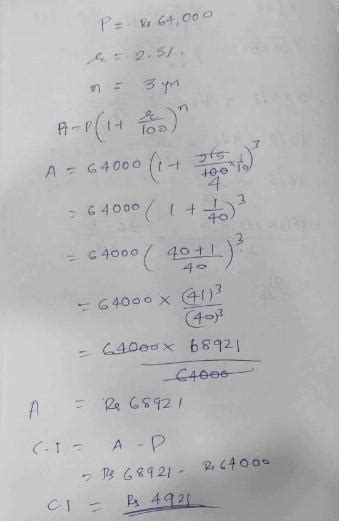 P = Rs 64,000
r = 2.5%
n = 3 yrs
A = P(1 + r/100)^n
A = 64000 (1 + 25/100 × 1/10)^3
4
= 64000 (1 + 1/40)^3
= 64000 (40+1/40)^3
= 64000 × (41)^3/(40)^3
= 64000 × 68921
64000
A = Rs 68921
C.I = A - P
= Rs 68921 - Rs 64000
CI = Rs 4921